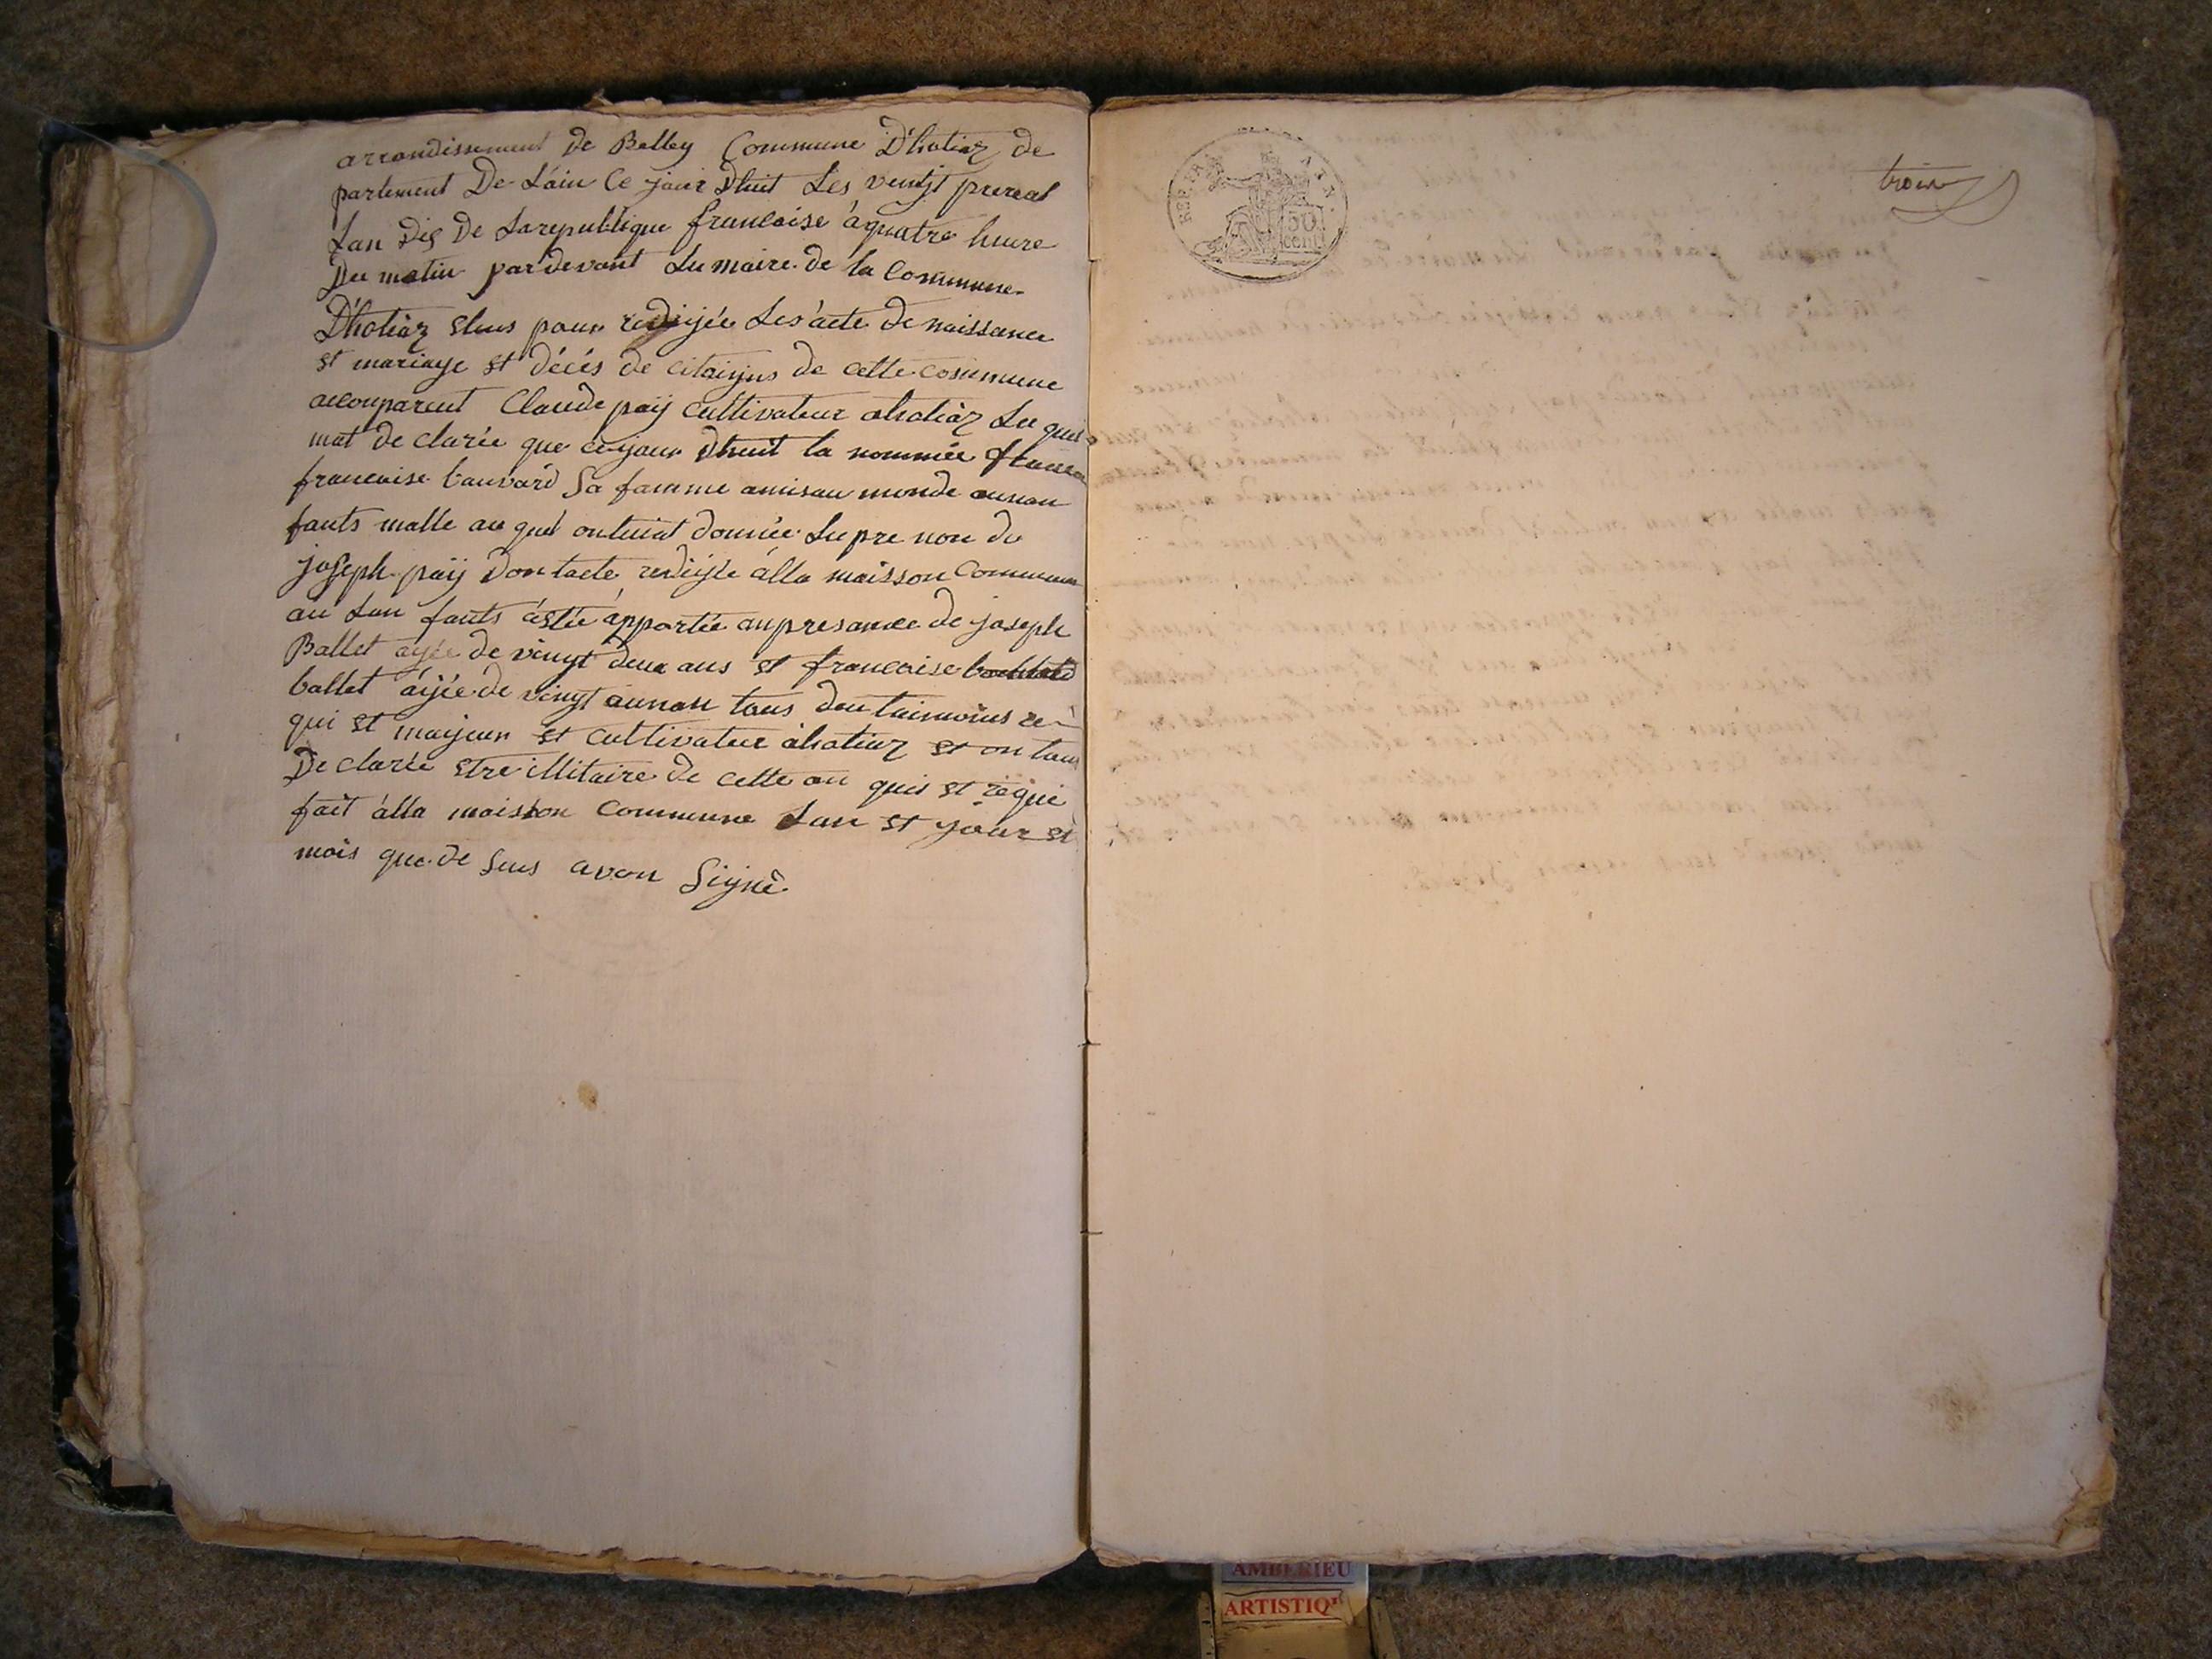 arrondissement de Belley Commune D'hotiaz de
partement De L'ain Ce jour Dhuit Les ventjt prereal
Lan Dis De Larepublique francoise à quatre heure
Du matin pardevant Lu maire de la Commune
D'hotiaz elus pour redijée Les acte de naissance
et mariage et décés de citoiyns de cette commune
acomparent Claude paÿ cultivateur ahotiaz Le quel
mat de clarée que ce jour dhuit la nommée
francoise bauvard Sa famme amisau monde aunan
fants malle au quel onluiat donnée Lupre non de
joseph paÿ Dontacte redijée alla maisson Commune
au Lan fants àstée àpportée anpresance de joseph
Ballet agée de vingt deux ans et francoise
ballet aijée de vingt aunan tous deu taimoins re
qui et majeur et cultivateur àhotiaz et on tous
De clarée etre illitaire de cette au quis et réqui
fait alla maisson Commune Lan et jour et
mois que de Sus avon Signé
troise
REP. FRA.
50
cent
AMBERIEU
ARTISTIQ